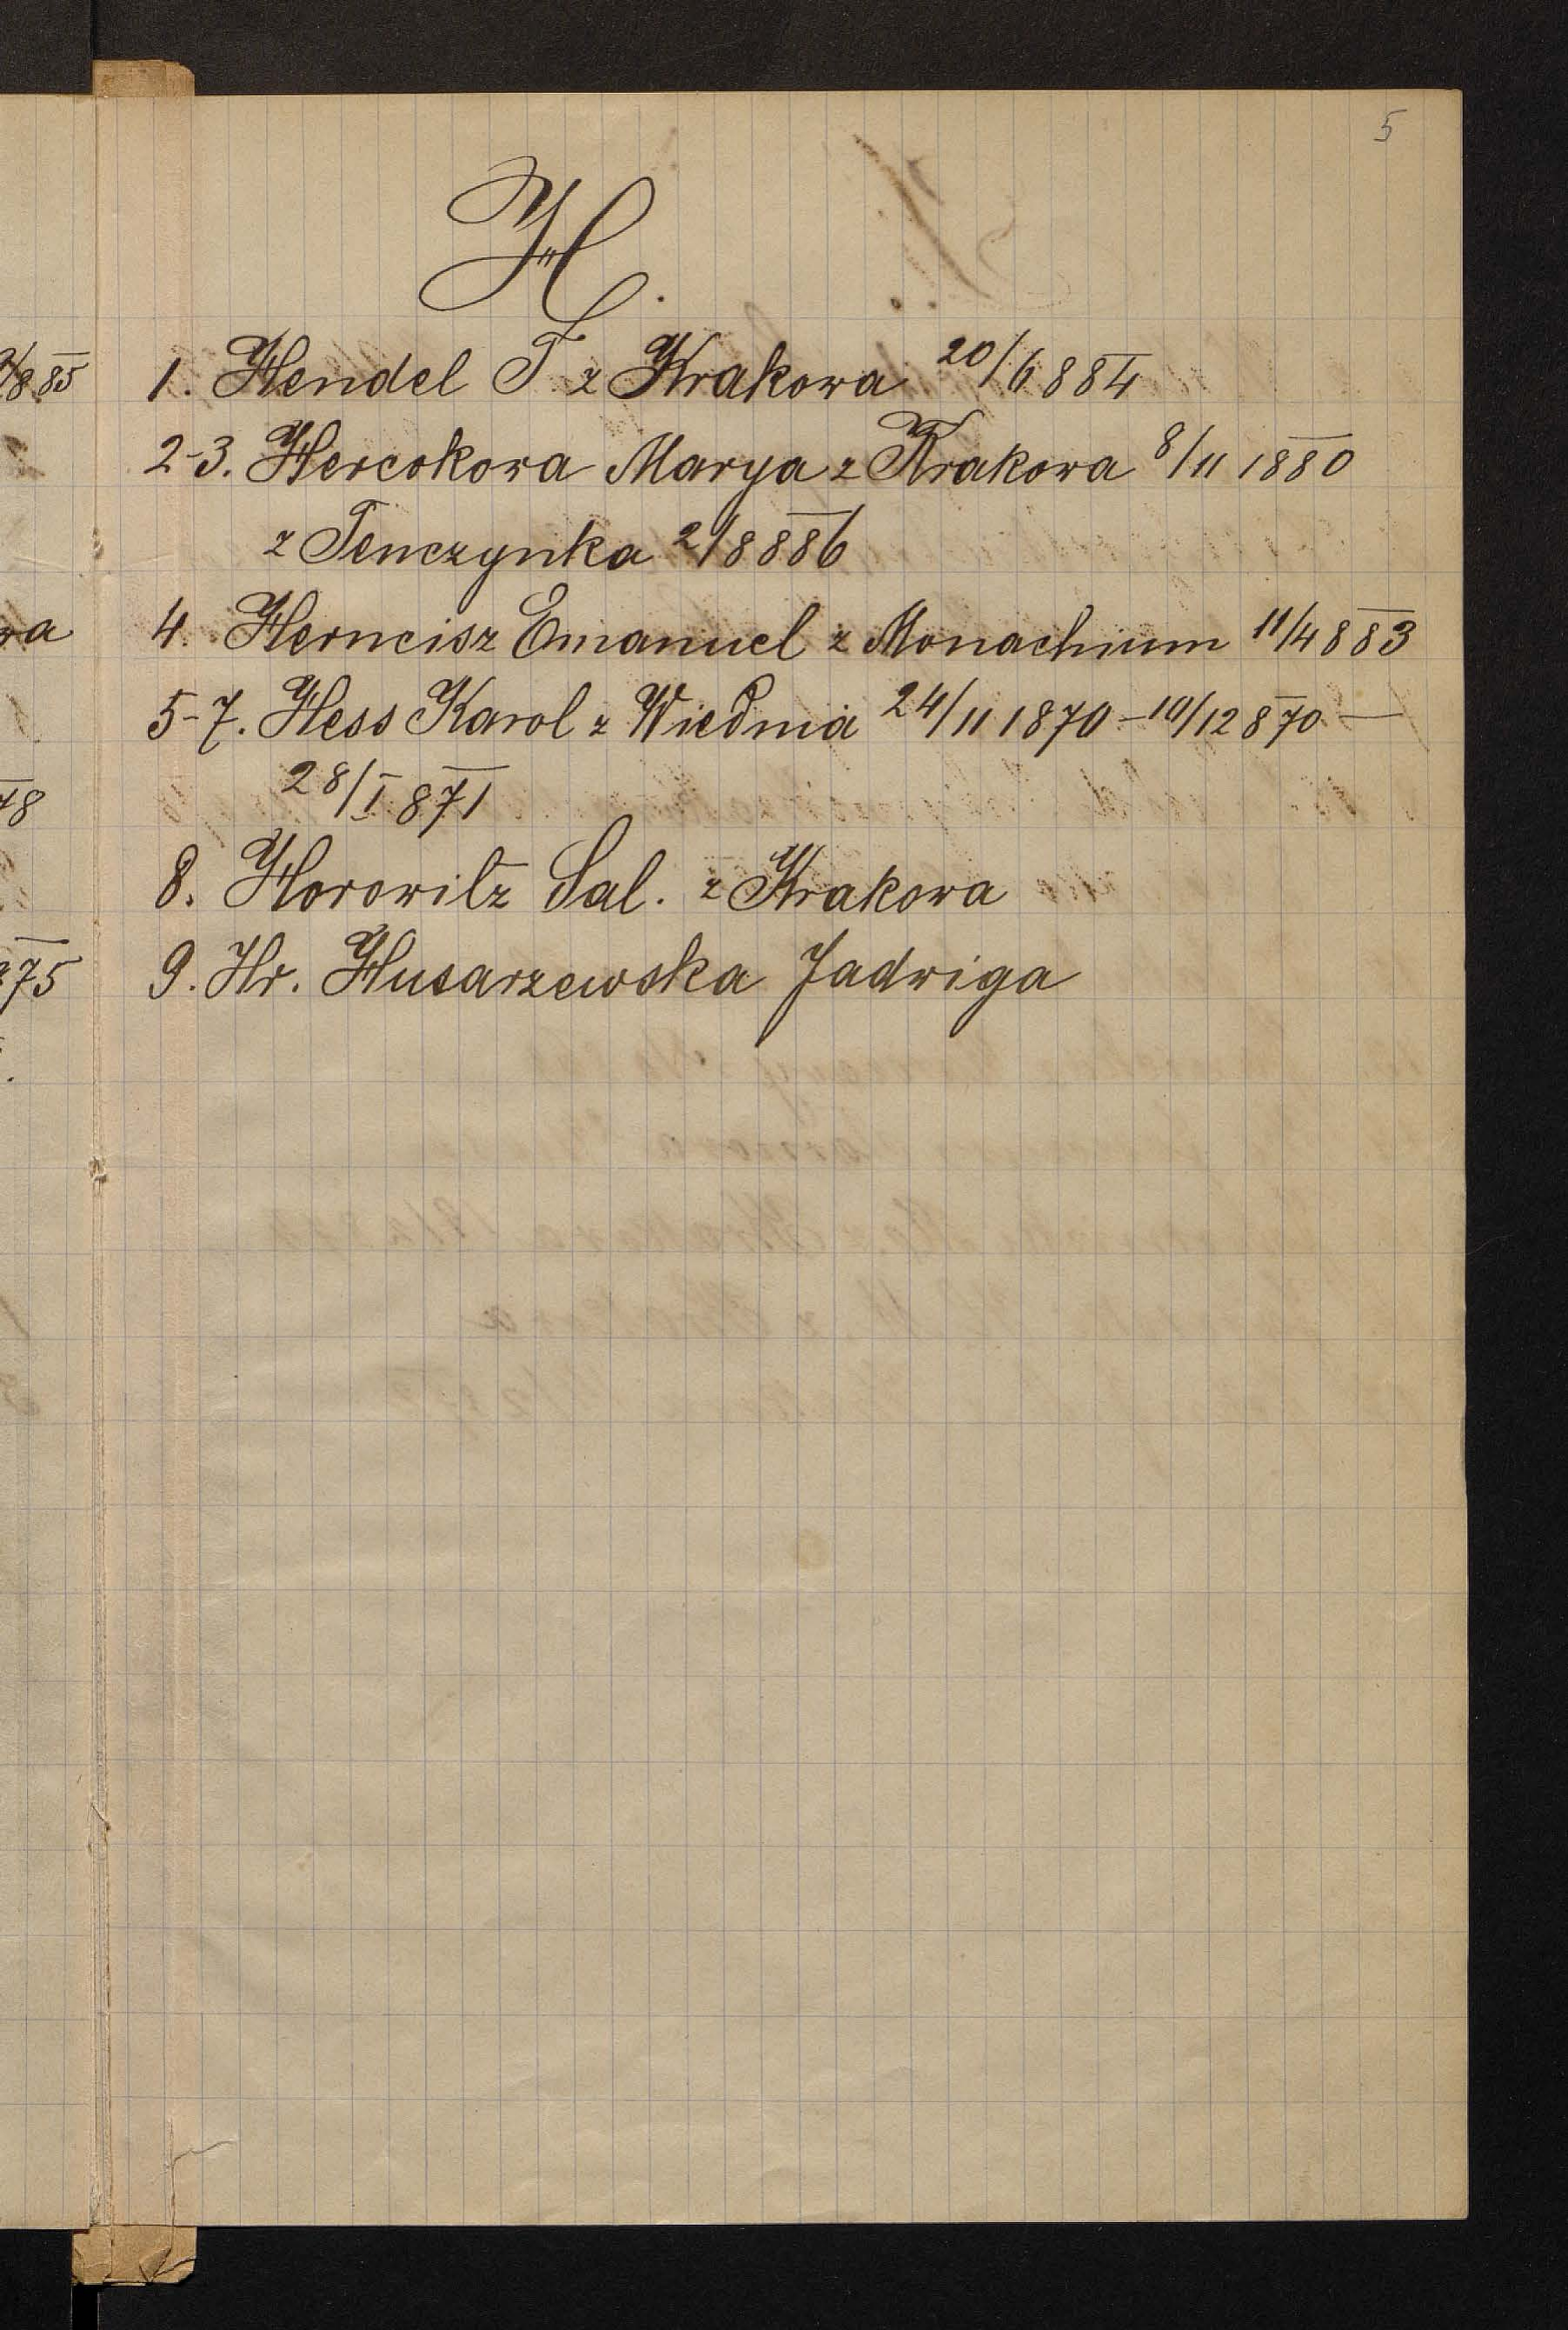 5
H.
1. Hendel F. z Krakowa 20/6 884
2-3. Hercokowa Marya z Krakowa 8/11 1880
z Tenczynka 2/8 886
4. Herncisz Emanuel z Monachium 11/4 883
5-7. Hess Karol z Wiednia 24/11 1870 - 10/12 870 -
28/I 871
8. Horowitz Sal. z Krakowa
9. Hr. Husarzewska Jadwiga
885
wa
78
75